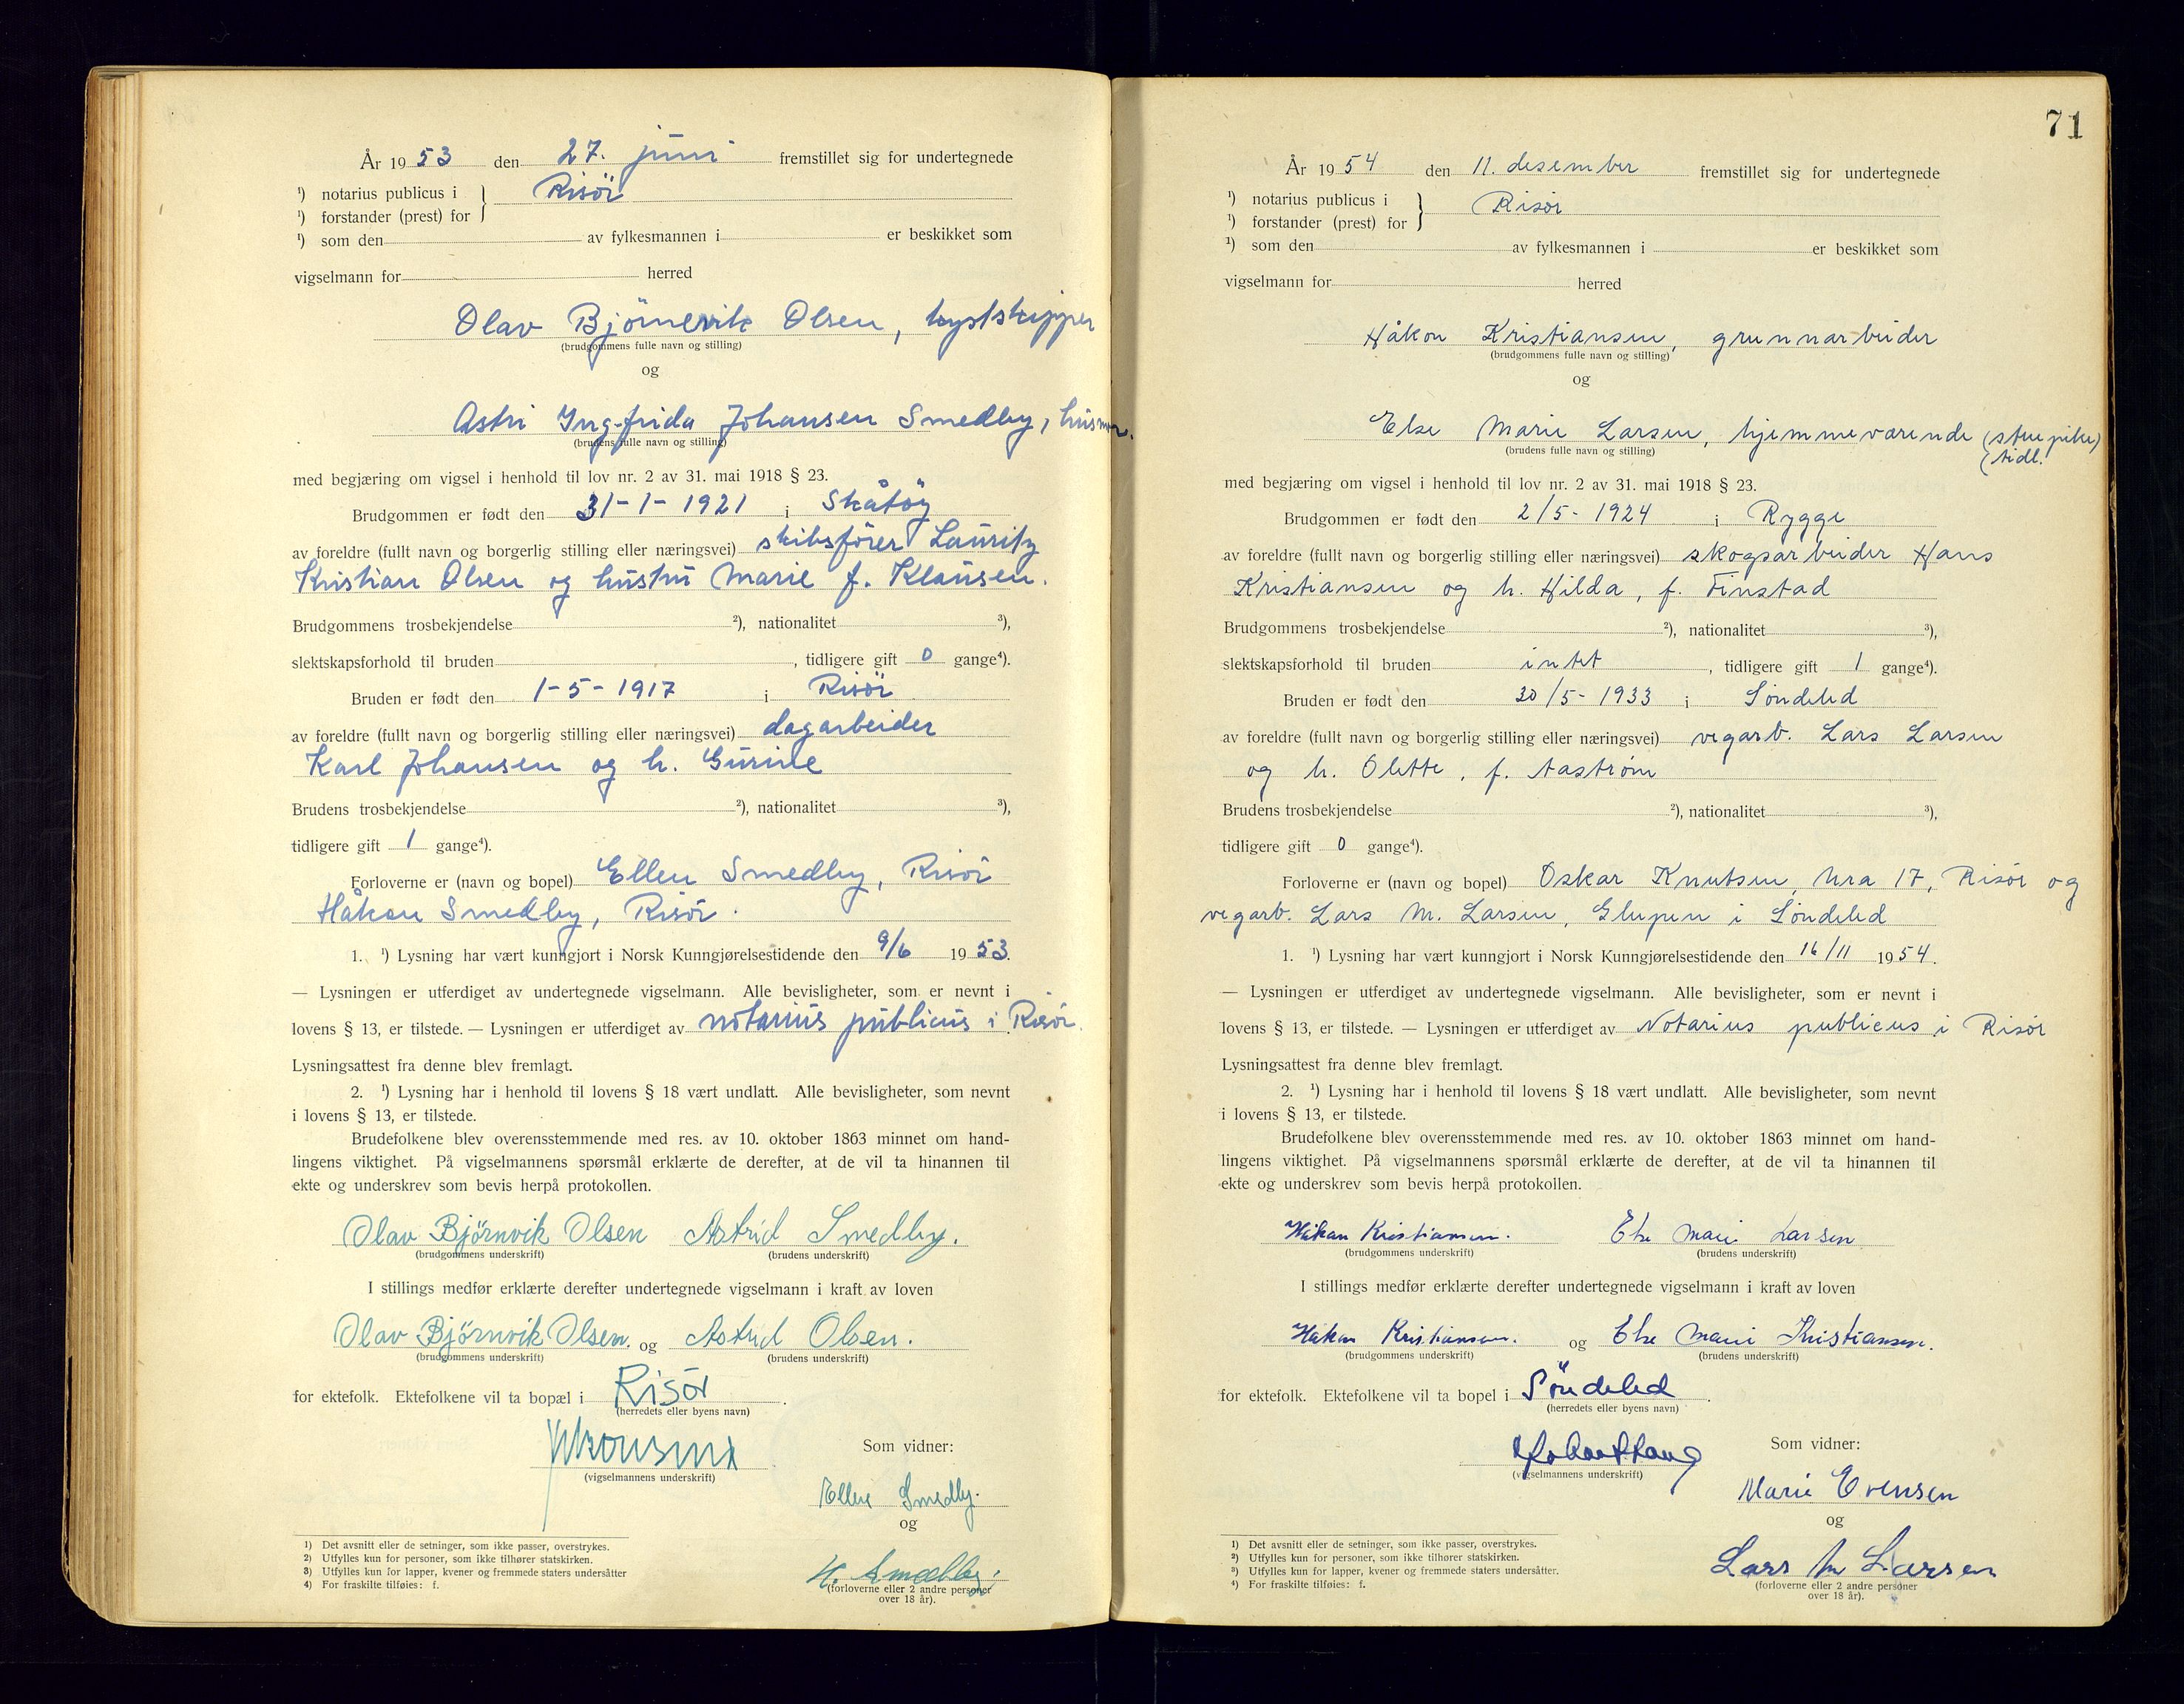 År 1953 den 27. juni fremstillet sig for undertegnede
¹) notarius publicus i } Risör
¹) forstander (prest) for
¹) som den av fylkesmannen i er beskikket som
vigselmann for herred
Olav Björnevik Olsen, kystskipper
(brudgommens fulle navn og stilling)
og
Astri Ingfrida Johansen Smedby, husmor.
(brudens fulle navn og stilling)
med begjæring om vigsel i henhold til lov nr. 2 av 31. mai 1918 § 23.
Brudgommen er født den 31-1-1921 i Skåtöy
av foreldre (fullt navn og borgerlig stilling eller næringsvei) skibsförer Lauritz
Kristian Olsen og hustru Marie f. Klausen.
Brudgommens trosbekjendelse ²), nationalitet ³),
slektskapsforhold til bruden , tidligere gift 0 gange⁴).
Bruden er født den 1-5-1917 i Risör
av foreldre (fullt navn og borgerlig stilling eller næringsvei) dagarbeider
Karl Johansen og h. Gurine
Brudens trosbekjendelse ²), nationalitet ³),
tidligere gift 1 gange⁴).
Forloverne er (navn og bopel) Ellen Smedby, Risör
Håkon Smedby, Risör.
1. ¹) Lysning har vært kunngjort i Norsk Kunngjørelsestidende den 9/6 1953.
— Lysningen er utferdiget av undertegnede vigselmann. Alle bevisligheter, som er nevnt i
lovens § 13, er tilstede. — Lysningen er utferdiget av notarius publicus i Risör.
Lysningsattest fra denne blev fremlagt.
2. ¹) Lysning har i henhold til lovens § 18 vært undlatt. Alle bevisligheter, som nevnt
i lovens § 13, er tilstede.
Brudefolkene blev overensstemmende med res. av 10. oktober 1863 minnet om hand-
lingens viktighet. På vigselmannens spørsmål erklærte de derefter, at de vil ta hinannen til
ekte og underskrev som bevis herpå protokollen.
Olav Björnvik Olsen Astrid Smedby.
(brudgommens underskrift) (brudens underskrift)
I stillings medfør erklærte derefter undertegnede vigselmann i kraft av loven
Olav Björnvik Olsen. og Astrid Olsen.
(brudgommens underskrift) (brudens underskrift)
for ektefolk. Ektefolkene vil ta bopæl i Risör.
(herredets eller byens navn)
Som vidner:
(vigselmannens underskrift)
Ellen Smedby.
og
H. Smedby.
(forloverne eller 2 andre personer
over 18 år).
¹) Det avsnitt eller de setninger, som ikke passer, overstrykes.
²) Utfylles kun for personer, som ikke tilhører statskirken.
³) Utfylles kun for lapper, kvener og fremmede staters undersåtter
⁴) For fraskilte tilføies: f.
71
År 1954 den 11. desember fremstillet sig for undertegnede
¹) notarius publicus i } Risör
¹) forstander (prest) for
¹) som den av fylkesmannen i er beskikket som
vigselmann for herred
Håkon Kristiansen, grunnarbeider
(brudgommens fulle navn og stilling)
og
Else Marie Larsen, hjemmeværende (stuepike)
(tidl.
(brudens fulle navn og stilling)
med begjæring om vigsel i henhold til lov nr. 2 av 31. mai 1918 § 23.
Brudgommen er født den 2/5-1924 i Rygge
av foreldre (fullt navn og borgerlig stilling eller næringsvei) skogsarbeider Hans
Kristiansen og h. Hilda, f. Finstad
Brudgommens trosbekjendelse ²), nationalitet ³),
slektskapsforhold til bruden intet, tidligere gift 1 gange⁴).
Bruden er født den 30/5-1933 i Söndeled
av foreldre (fullt navn og borgerlig stilling eller næringsvei) vegarb. Lars Larsen
og h. Olette, f. Aaström
Brudens trosbekjendelse ²), nationalitet ³),
tidligere gift 0 gange⁴).
Forloverne er (navn og bopel) Oskar Knutsen, Ura 17, Risör og
vegarb. Lars M. Larsen, Glupen i Söndeled
1. ¹) Lysning har vært kunngjort i Norsk Kunngjørelsestidende den 16/11 1954.
— Lysningen er utferdiget av undertegnede vigselmann. Alle bevisligheter, som er nevnt i
lovens § 13, er tilstede. — Lysningen er utferdiget av Notarius publicus i Risör
Lysningsattest fra denne blev fremlagt.
2. ¹) Lysning har i henhold til lovens § 18 vært undlatt. Alle bevisligheter, som nevnt
i lovens § 13, er tilstede.
Brudefolkene blev overensstemmende med res. av 10. oktober 1863 minnet om hand-
lingens viktighet. På vigselmannens spørsmål erklærte de derefter, at de vil ta hinannen til
ekte og underskrev som bevis herpå protokollen.
Håkon Kristiansen. Else Marie Larsen
(brudgommens underskrift) (brudens underskrift)
I stillings medfør erklærte derefter undertegnede vigselmann i kraft av loven
Håkon Kristiansen. og Else Marie Kristiansen.
(brudgommens underskrift) (brudens underskrift)
for ektefolk. Ektefolkene vil ta bopel i Söndeled.
(herredets eller byens navn)
Som vidner:
(vigselmannens underskrift)
Marie Evensen
og
Lars M Larsen
(forloverne eller 2 andre personer
over 18 år).
¹) Det avsnitt eller de setninger, som ikke passer, overstrykes.
²) Utfylles kun for personer, som ikke tilhører statskirken.
³) Utfylles kun for lapper, kvener og fremmede staters undersåtter.
⁴) For fraskilte tilføies: f.